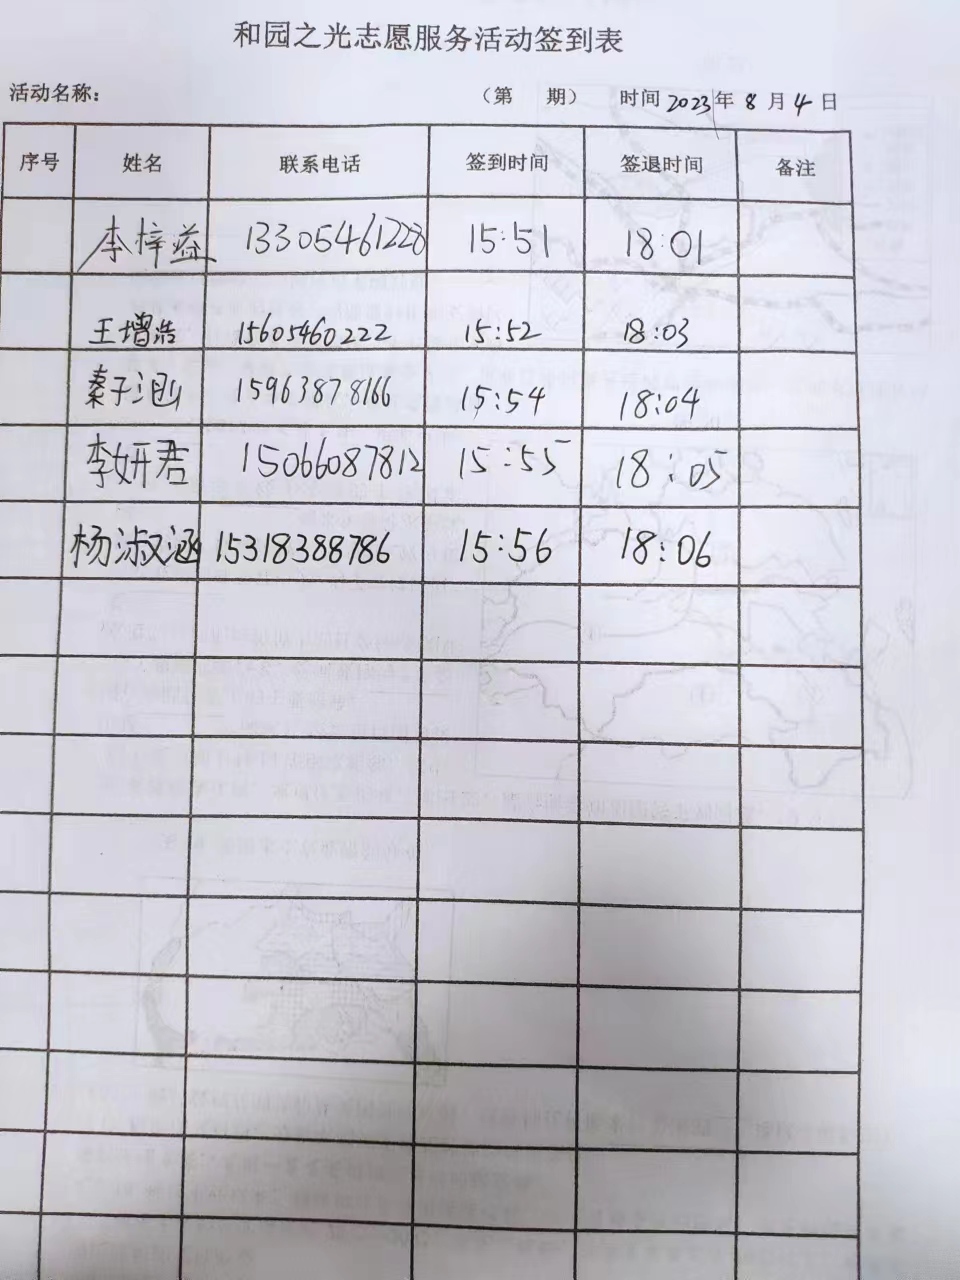 和园之光志愿服务活动签到表
活动名称： （第 期） 时间 2023年 8 月 4 日
序号 姓名 联系电话 签到时间 签退时间 备注
李梓益 13305461228 15:51 18:01
王增浩 15605460222 15:52 18:03
秦子涵 15963878166 15:54 18:04
李妍君 15066087812 15:55 18:05
杨淑涵 15318388786 15:56 18:06